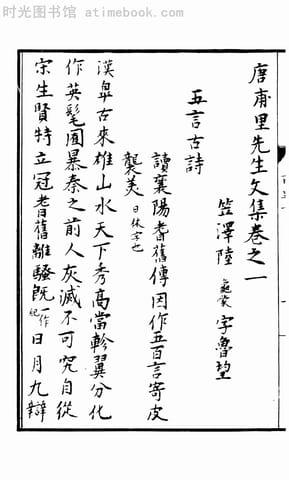 时光图书馆 atimebook.com
唐甫里先生文集卷之一
笠澤陸龜蒙字魯望
五言古詩
讀襄陽耆舊傳因作五百言寄皮
襲美日休字也
漢皐古來雄山水天下秀高當軫翼分化
作英髦囿暴秦之前人灰滅不可究自從
宋生賢特立冠耆舊離騷既一作紀日月九辯